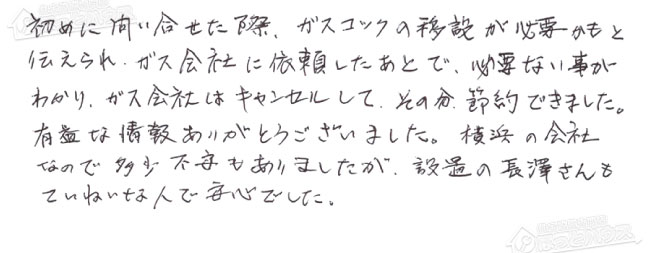 初めに問い合せた際、ガスコックの移設が必要かもと
伝えられ、ガス会社に依頼したあとで、必要ない事が
わかり、ガス会社はキャンセルして、その分、節約できました。
有益な情報ありがとうございました。横浜の会社
なので多少不安もありましたが、設置の長澤さんも
ていねいな人で安心でした。